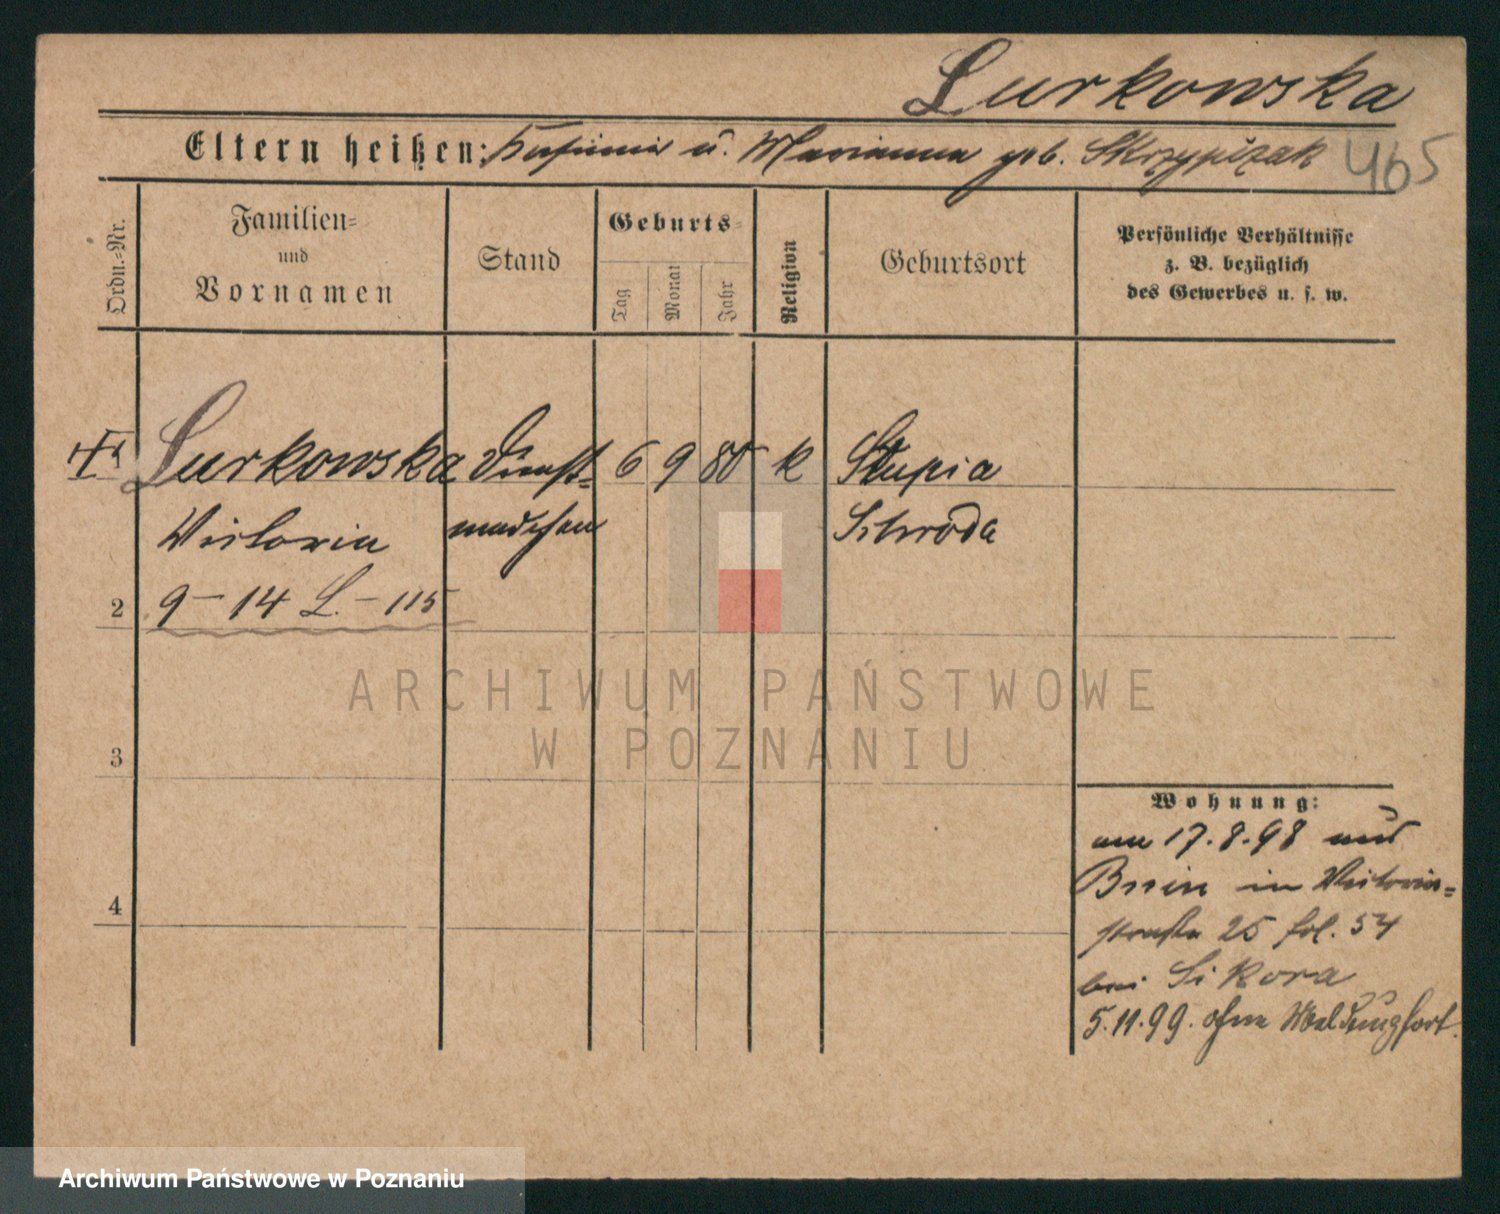 Lurkowska
Eltern heißen: u. Marianna geb. Skrzypczak 465
Ordn.-Nr.
Familien-
und
Vornamen
Stand
Geburts-
Tag
Monat
Jahr
Religion
Geburtsort
Persönliche Verhältnisse
z. B. bezüglich
des Gewerbes u. s. w.
Lurkowska Dienst- 6 9 80 k Slupia
Victoria mädchen Schroda
2 9 – 14 L. – 115
3
4
Wohnung:
am 17.8.98 aus
Bnin in Victoria-
straße 25 fol. 54
bei Sikora
5.11.99. ohne Meldung fort.
ARCHIWUM PAŃSTWOWE
W POZNANIU
Archiwum Państwowe w Poznaniu